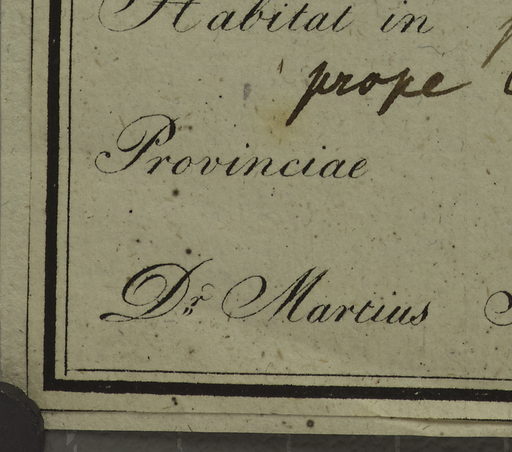 Habitat in
prope
Provinciae
Dr. Martius